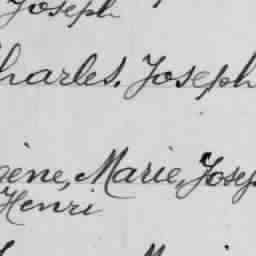 Joseph
harles, Joseph
gène, Marie, Josep
Henri